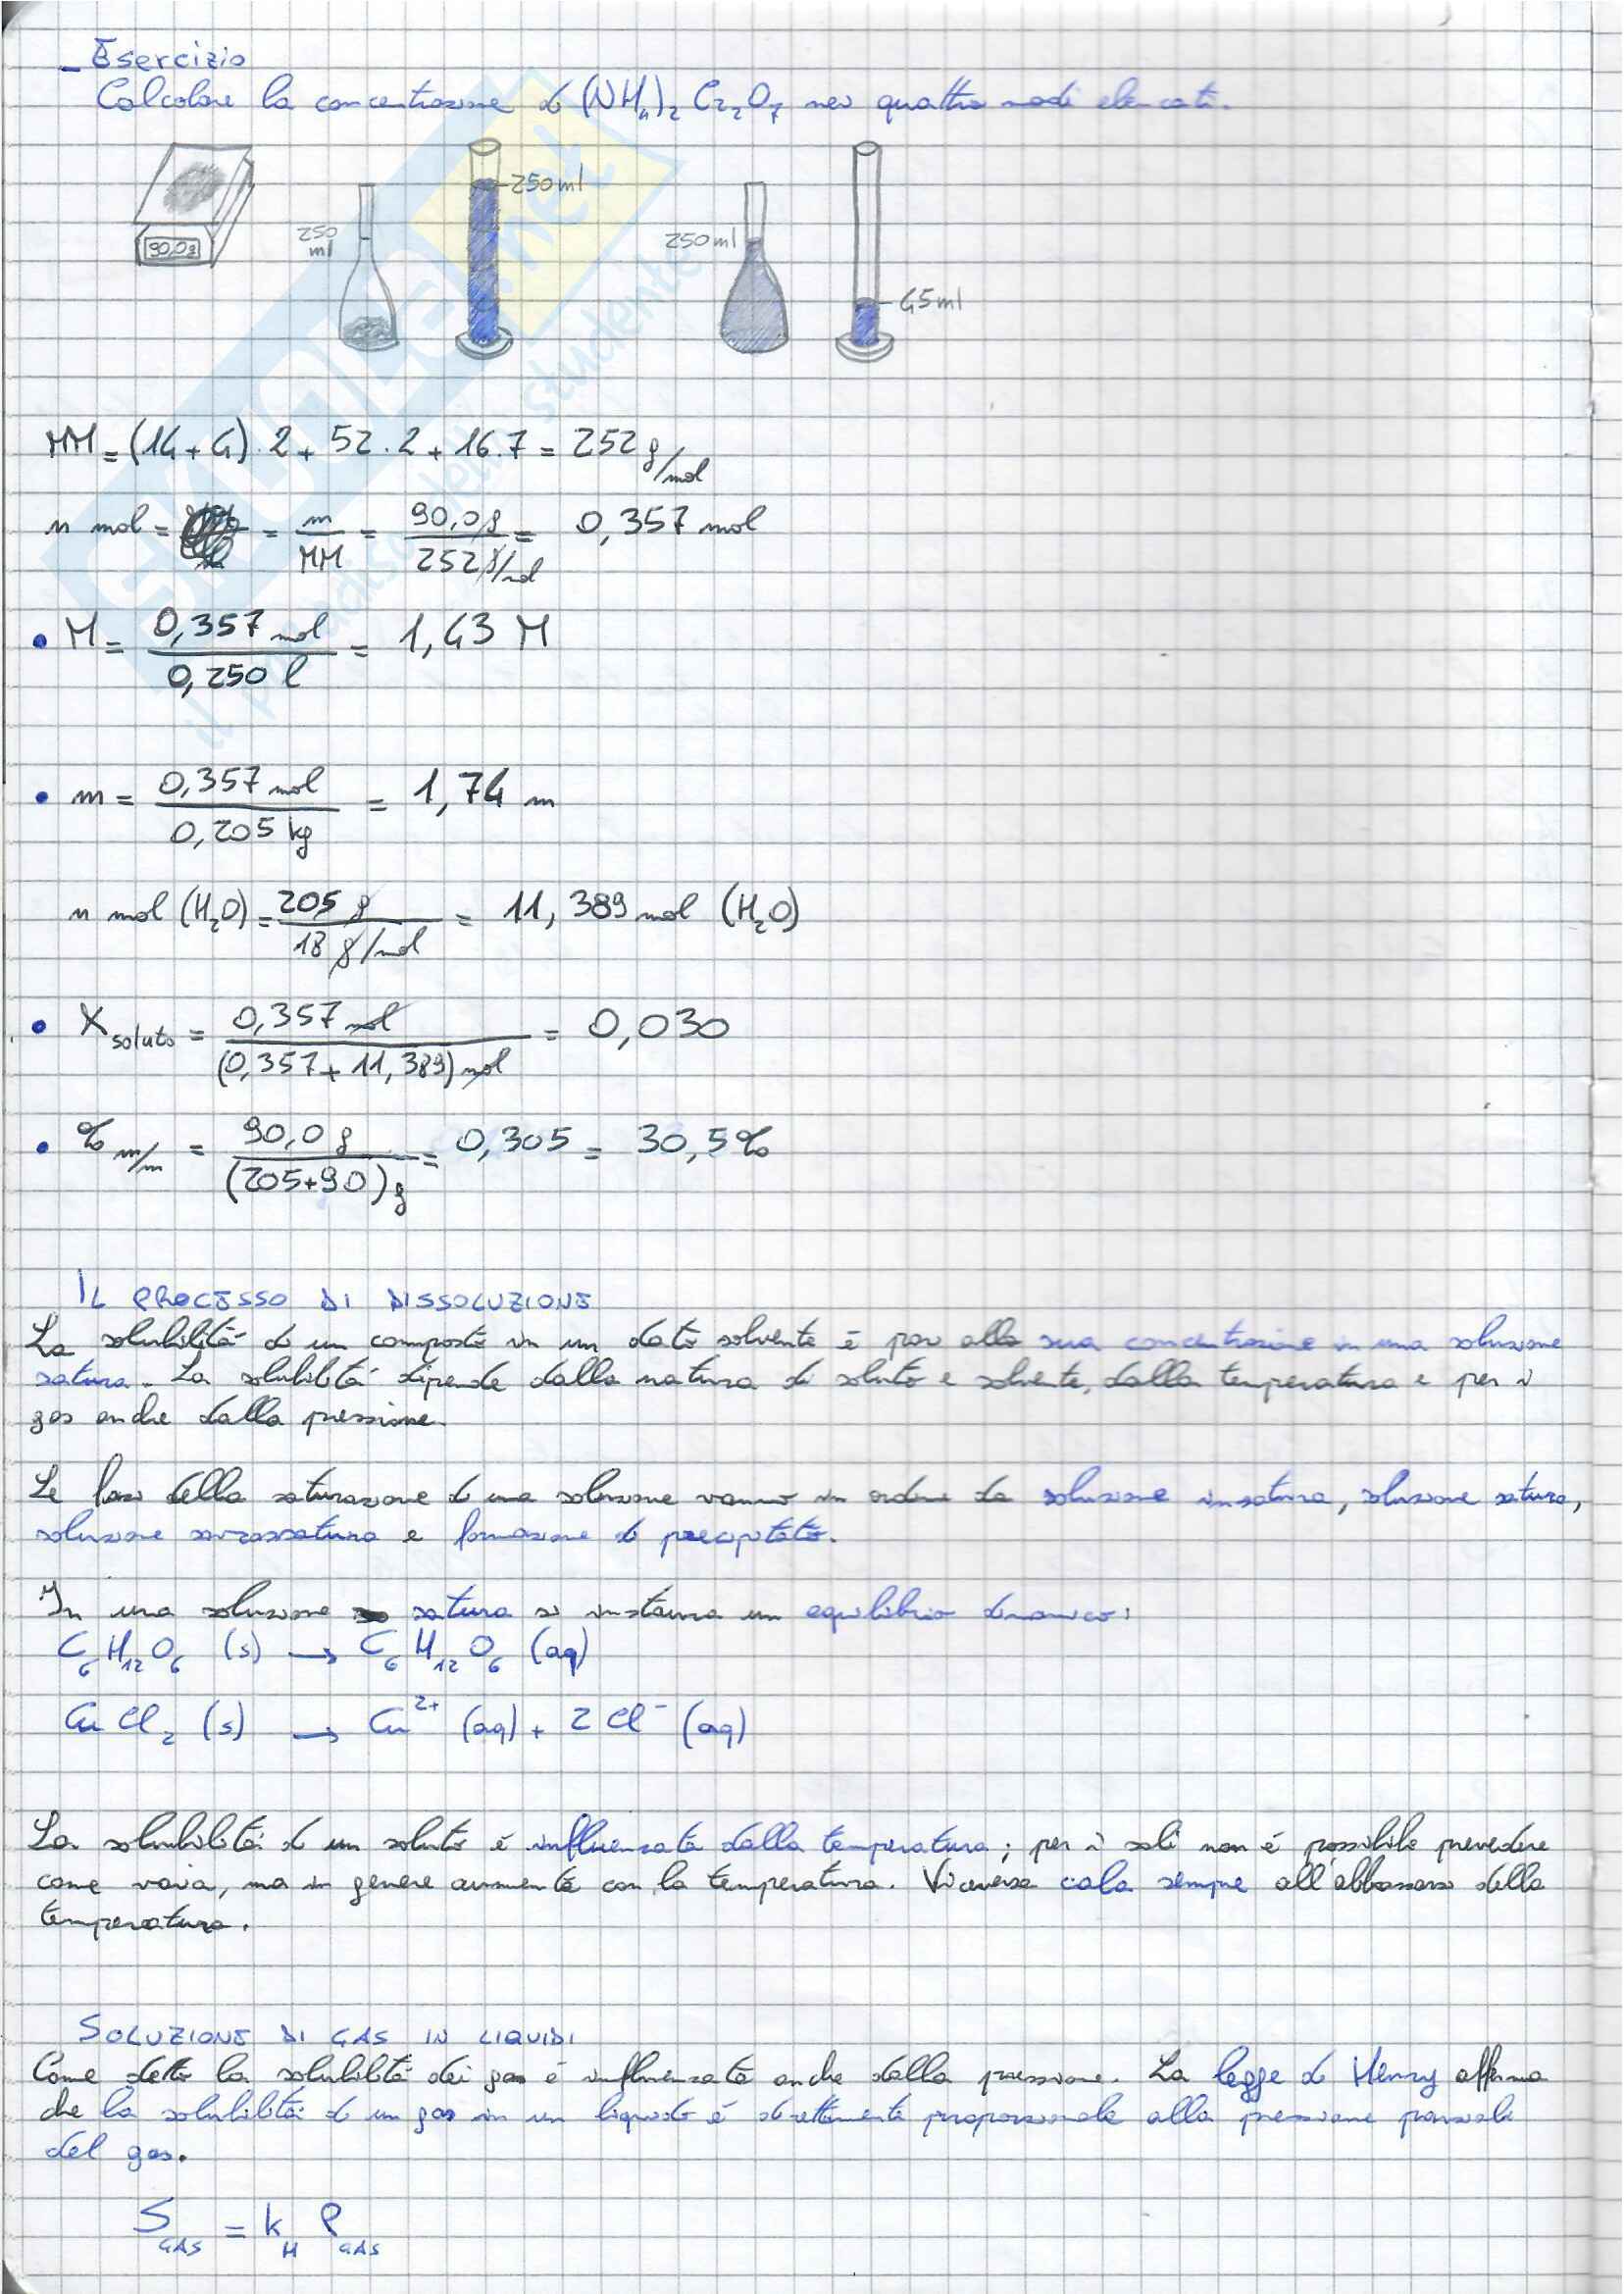 - Esercizio
Calcolare la concentrazione di (NH₄)₂ Cr₂O₇ nei quattro modi elencati.
250ml
250 ml
250ml
90,0g
45ml
MM = (14+4)·2 + 52·2 + 16·7 = 252 g/mol
n mol = = m/MM = 90,0g / 252 g/mol = 0,357 mol
• M = 0,357 mol / 0,250 l = 1,43 M
• m = 0,357 mol / 0,205 kg = 1,74 m
n mol (H₂O) = 205 g / 18 g/mol = 11,389 mol (H₂O)
• X soluto = 0,357 mol / (0,357 + 11,389) mol = 0,030
• % m/m = 90,0 g / (205+90) g = 0,305 = 30,5%
IL PROCESSO DI DISSOLUZIONE
La solubilità di un composto in un dato solvente è pari alla sua concentrazione in una soluzione
satura. La solubilità dipende dalla natura di soluto e solvente, dalla temperatura e per i
gas anche dalla pressione.
Le fasi della saturazione di una soluzione vanno in ordine da soluzione insatura, soluzione satura,
soluzione sovrassatura e formazione di precipitato.
In una soluzione satura si instaura un equilibrio dinamico:
C₆H₁₂O₆ (s) → C₆H₁₂O₆ (aq)
CuCl₂ (s) → Cu²⁺ (aq) + 2Cl⁻ (aq)
La solubilità di un soluto è influenzata dalla temperatura; per i sali non è possibile prevedere
come varia, ma in genere aumenta con la temperatura. Viceversa cala sempre all'abbassarsi della
temperatura.
SOLUZIONE DI GAS IN LIQUIDI
Come detto la solubilità dei gas è influenzata anche dalla pressione. La legge di Henry afferma
che la solubilità di un gas in un liquido è direttamente proporzionale alla pressione parziale
del gas.
S GAS = k H P GAS